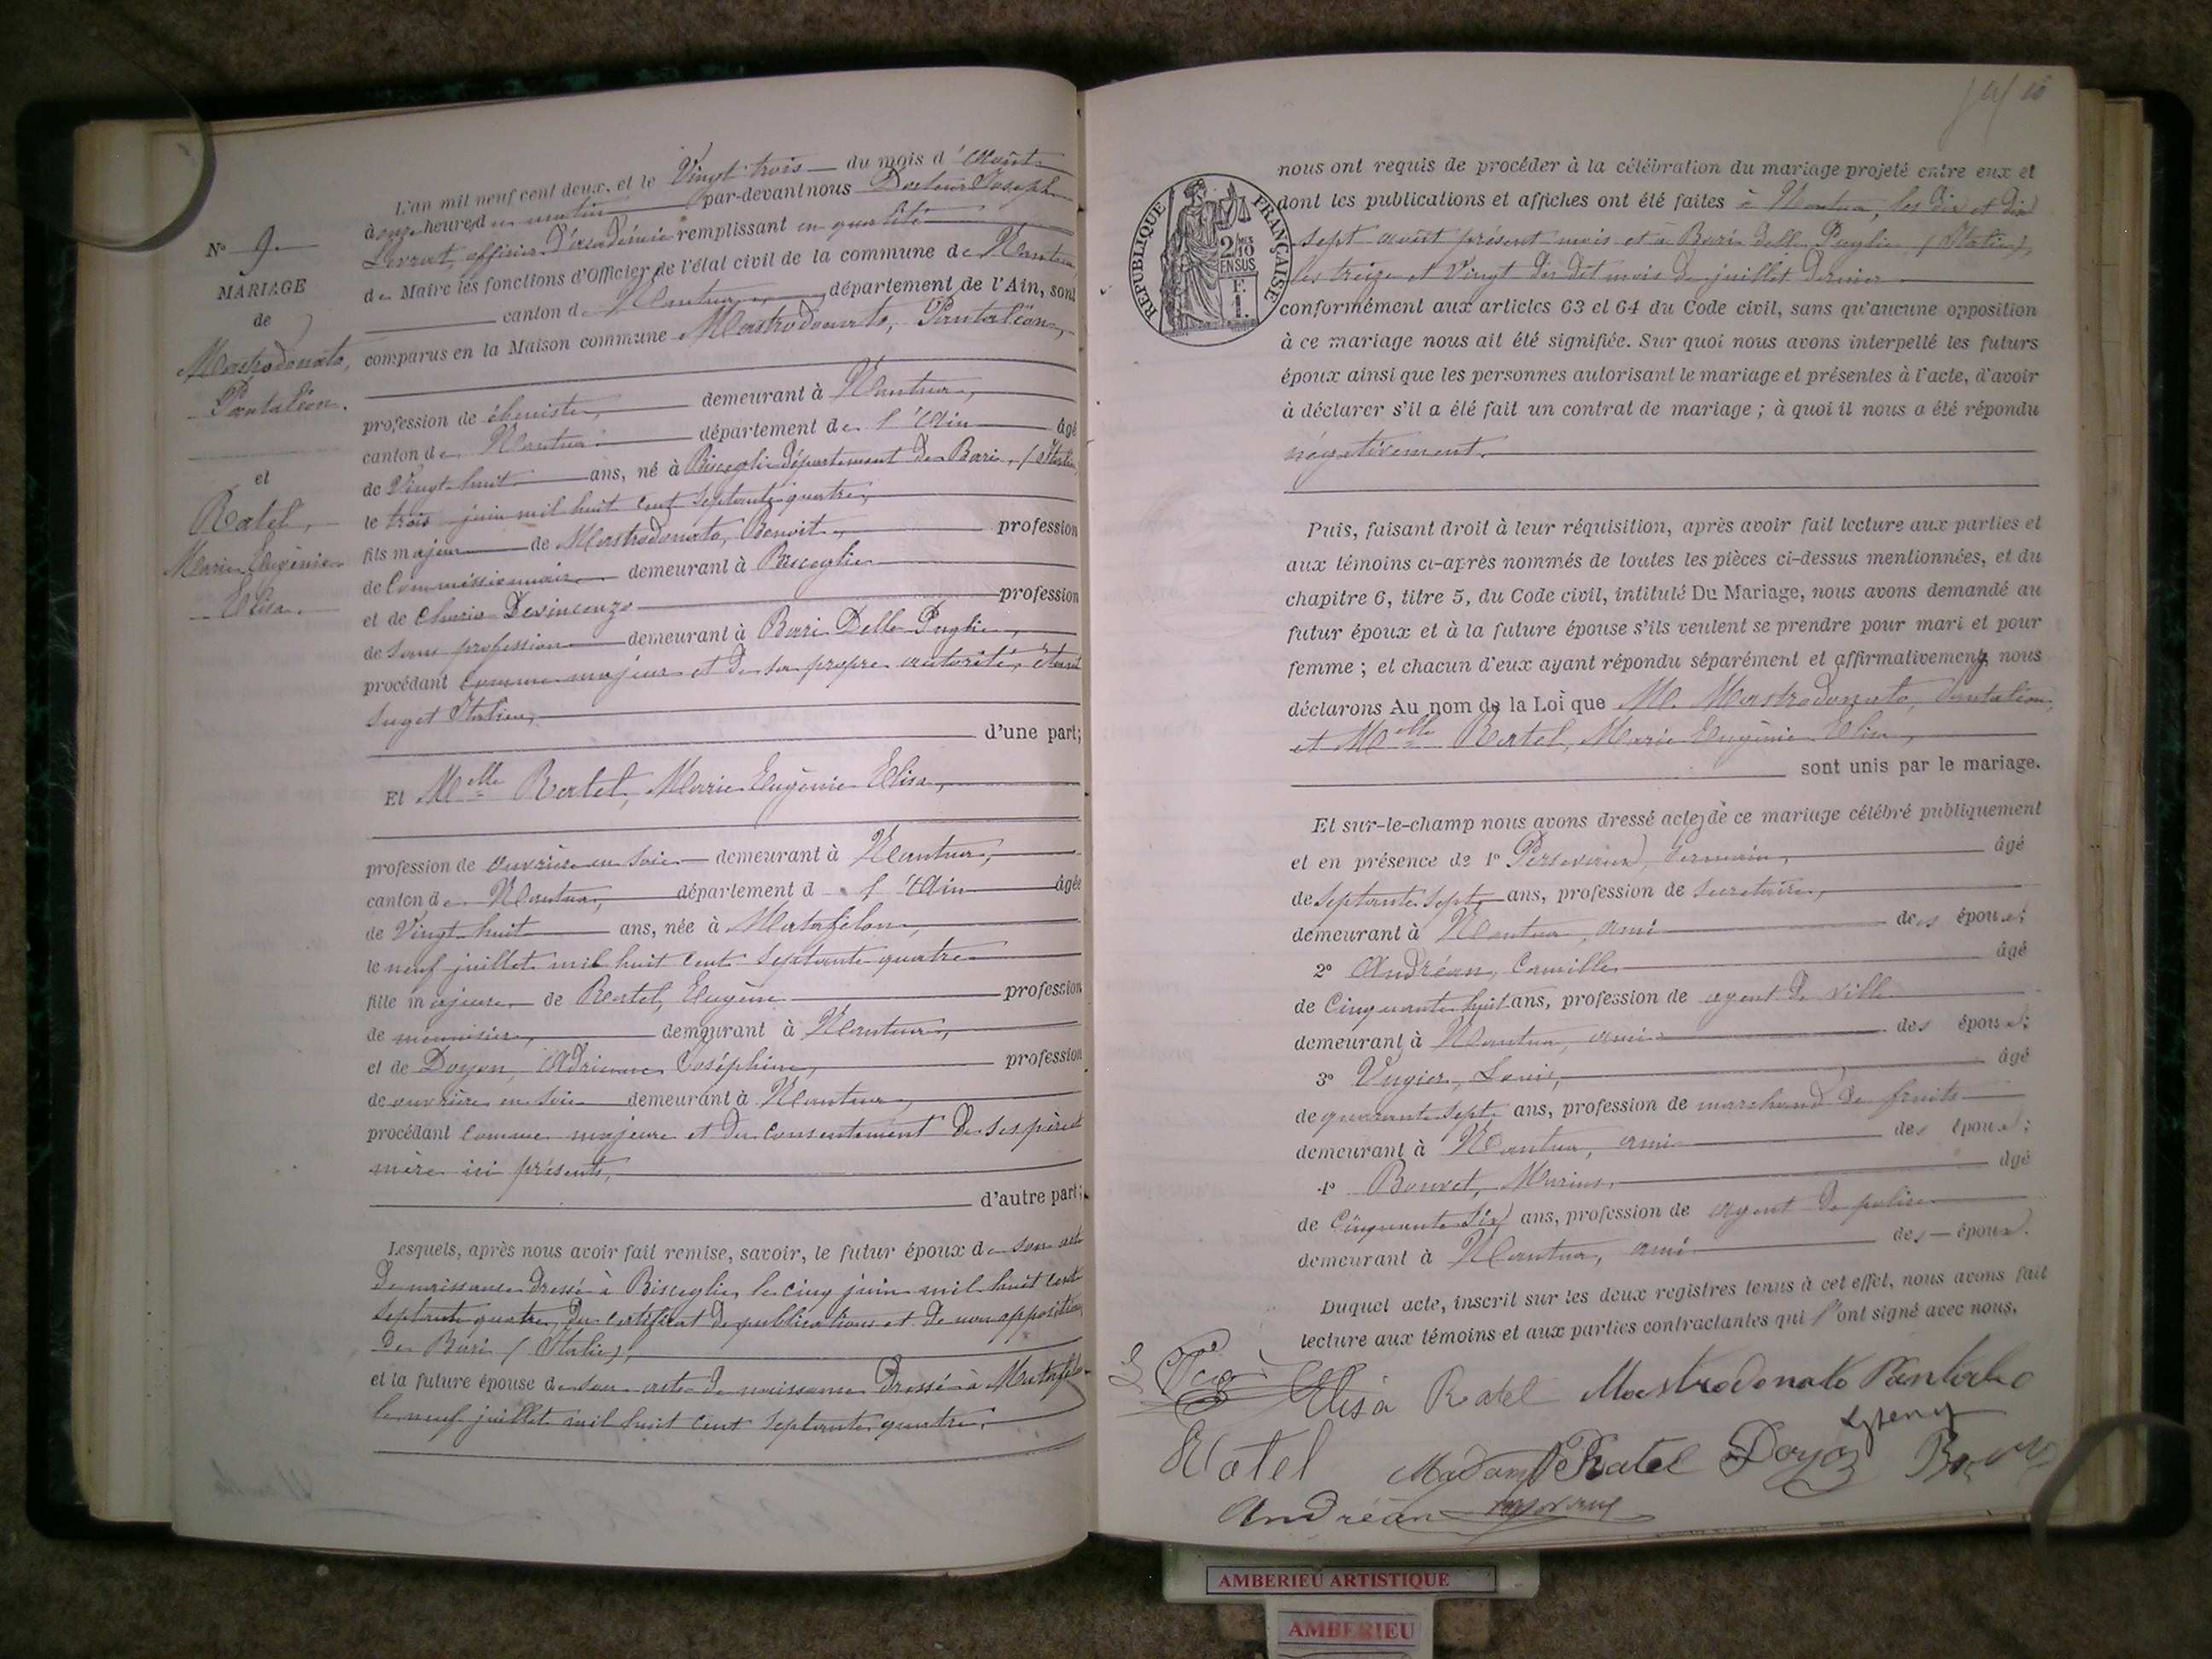 L'an mil neuf cent deux, et le Vingt trois du mois d'Août
à onze heures du matin par-devant nous Docteur Joseph
Levrat, officier d'académie remplissant en qualité
de Maire les fonctions d'Officier de l'état civil de la commune de Nantua
canton de Nantua, département de l'Ain, sont
comparus en la Maison commune Mastrodonato, Pantaléon,
N° 9
MARIAGE
de
Mastrodonato,
Pantaléon.
et
Ratel,
Marie Eugénie
Elisa.
profession de ébéniste, demeurant à Nantua,
canton de Nantua département de l'Ain âgé
de Vingt-huit ans, né à Bisceglie département de Bari, (Italie)
le trois juin mil huit cent septante quatre,
fils majeur de Mastrodonato, Benoit, profession
de Commissionnaire demeurant à Bisceglie
et de Devincenzo profession
de sans profession demeurant à Bari Delle Puglie,
procédant comme majeur et de sa propre autorité, étant
Suget Italien,
d'une part;
Et Melle Ratel, Marie Eugénie Elisa,
profession de ouvrière en soie demeurant à Nantua,
canton de Nantua, département de l'Ain âgée
de Vingt-huit ans, née à Matafelon,
le neuf juillet mil huit cent septante quatre
fille majeure de Ratel, Eugène profession
de menuisier, demeurant à Nantua,
et de Doyon, Adrienne Joséphine, profession
de ouvrière en soie demeurant à Nantua,
procédant comme majeure et du consentement de ses père et
mère ici présents,
d'autre part;
Lesquels, après nous avoir fait remise, savoir, le futur époux de son acte
de naissance dressé à Bisceglie, le cinq juin mil huit cent
septante quatre, du certificat de publications et de non opposition
de Bari (Italie),
et la future épouse de son acte de naissance dressé à Matafelon
le neuf juillet mil huit cent septante quatre.
10
nous ont requis de procéder à la célébration du mariage projeté entre eux et
dont les publications et affiches ont été faites à Nantua, les dix et dix
sept août présent mois et à Bari delle Puglie (Italie),
les treize et Vingt du dit mois de juillet dernier
conformément aux articles 63 et 64 du Code civil, sans qu'aucune opposition
à ce mariage nous ait été signifiée. Sur quoi nous avons interpellé les futurs
époux ainsi que les personnes autorisant le mariage et présentes à l'acte, d'avoir
à déclarer s'il a été fait un contrat de mariage ; à quoi il nous a été répondu
négativement.
REPUBLIQUE FRANÇAISE
2/10
EN SUS
F.
1.
Puis, faisant droit à leur réquisition, après avoir fait lecture aux parties et
aux témoins ci-après nommés de toutes les pièces ci-dessus mentionnées, et du
chapitre 6, titre 5, du Code civil, intitulé Du Mariage, nous avons demandé au
futur époux et à la future épouse s'ils veulent se prendre pour mari et pour
femme ; et chacun d'eux ayant répondu séparément et affirmativement, nous
déclarons Au nom de la Loi que M. Mastrodonato, Pantaléon,
et Melle Ratel, Marie Eugénie Elisa,
sont unis par le mariage.
Et sur-le-champ nous avons dressé acte de ce mariage célébré publiquement
et en présence de 1° Germain, âgé
de septante sept ans, profession de secrétaire,
demeurant à Nantua, ami des époux;
2° Andréan, Camille âgé
de Cinquante huit ans, profession de agent de ville
demeurant à Nantua, ami des époux;
3° Vugier, Louis, âgé
de quarante sept ans, profession de marchand de fruits
demeurant à Nantua, ami des époux;
4° Bouvet, Marius, âgé
de Cinquante six ans, profession de agent de police
demeurant à Nantua, ami des époux.
Duquel acte, inscrit sur les deux registres tenus à cet effet, nous avons fait
lecture aux témoins et aux parties contractantes qui l'ont signé avec nous.
Elisa Ratel Mastrodonato Pantaleo
Ratel Madame Ratel Doyon
Andréan
AMBERIEU ARTISTIQUE
AMBERIEU